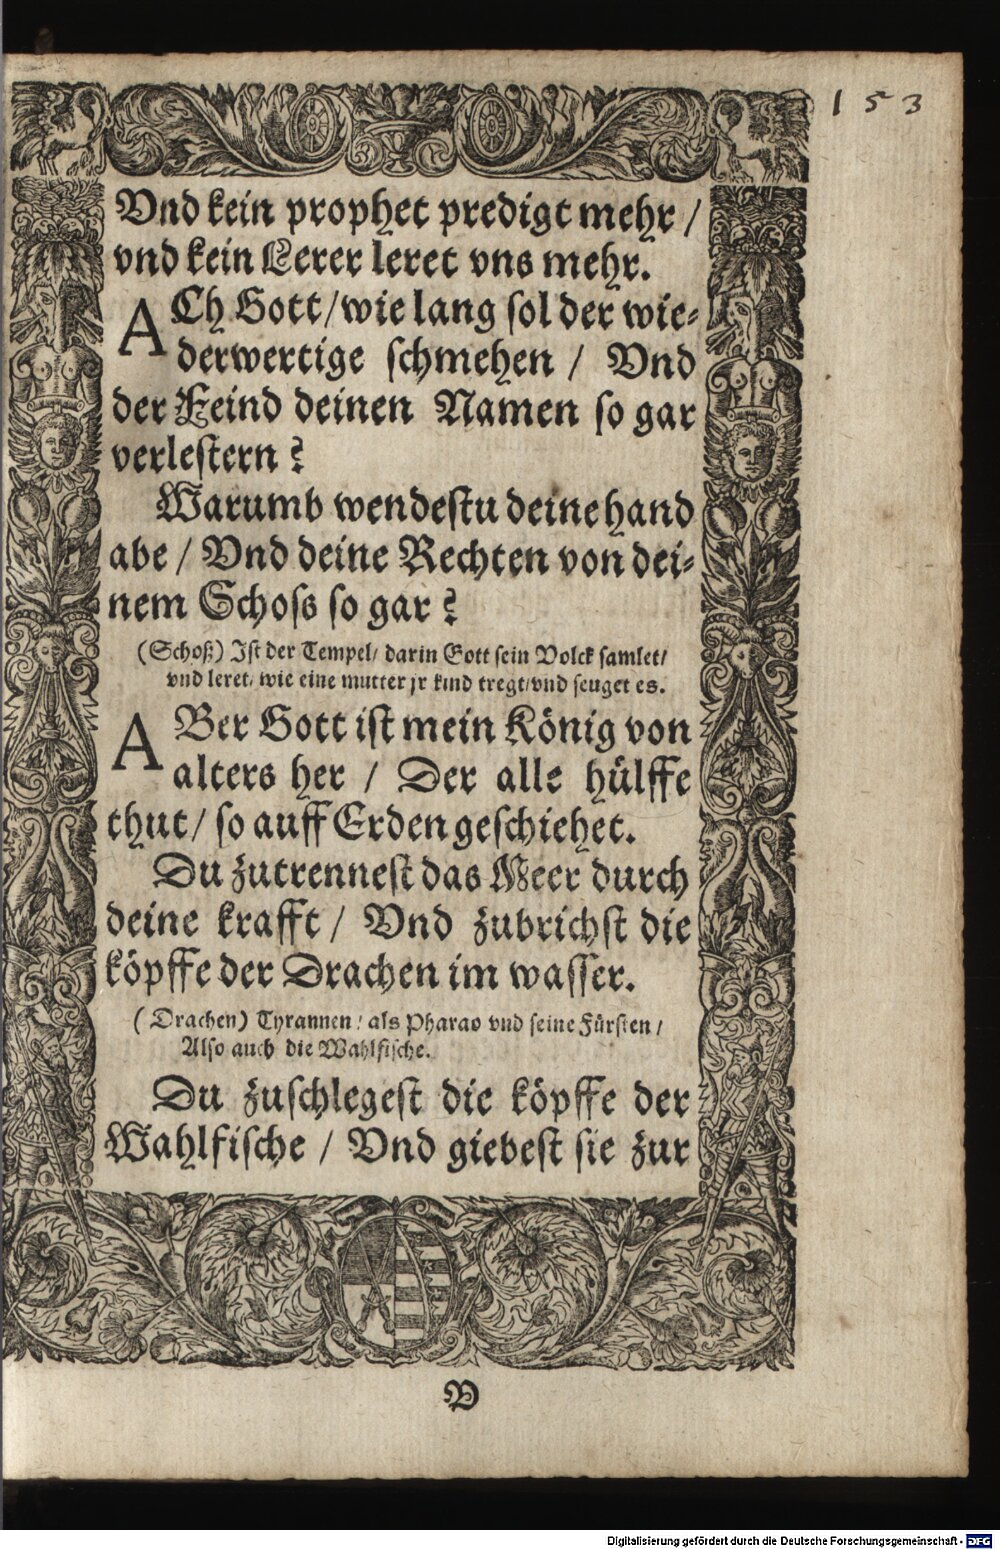 153
Vnd kein prophet predigt mehr /
vnd kein Lerer leret vns mehr.
ACh Gott / wie lang sol der wie-
derwertige schmehen / Vnd
der Feind deinen Namen so gar
verlestern?
Warumb wendestu deine hand
abe / Vnd deine Rechten von dei-
nem Schoss so gar?
(Schoß) Ist der Tempel / darin Gott sein Volck samlet /
vnd leret / wie eine mutter jr kind tregt / vnd seuget es.
ABer Gott ist mein König von
alters her / Der alle hülffe
thut / so auff Erden geschiehet.
Du zutrennest das Meer durch
deine krafft / Vnd zubrichst die
köpffe der Drachen im wasser.
(Drachen) Tyrannen / als Pharao vnd seine Fürsten /
Also auch die Wahlfische.
Du zuschlegest die köpffe der
Wahlfische / Vnd giebest sie zur
V
Digitalisierung gefördert durch die Deutsche Forschungsgemeinschaft - DFG